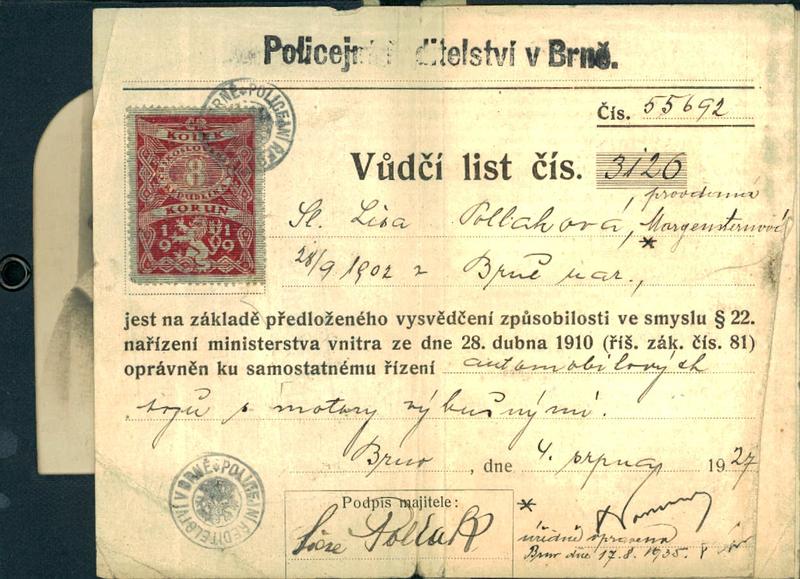 Policejní ředitelství v Brně.
Čís. 55692
BRNĚ * POLICEJNÍ ŘED
KOLEK
ČESKOSLOVENSKÉ
8
REPUBLIKY
KORUN
1919
Vůdčí list čís. 3126
provdaná
Sl. Lisa Pollaková, Morgensternová
*
28/9 1902 v Brně nar.,
jest na základě předloženého vysvědčení způsobilosti ve smyslu § 22.
nařízení ministerstva vnitra ze dne 28. dubna 1910 (říš. zák. čís. 81)
oprávněn ku samostatnému řízení automobilových
vozů s motory výbušnými.
Brno, dne 4. srpna 1927
ŘEDITELSTVÍ V BRNĚ * POLICEJNÍ
Podpis majitele:
Lise Pollak
*
úředně opraveno
Brno dne 17.8.1935.